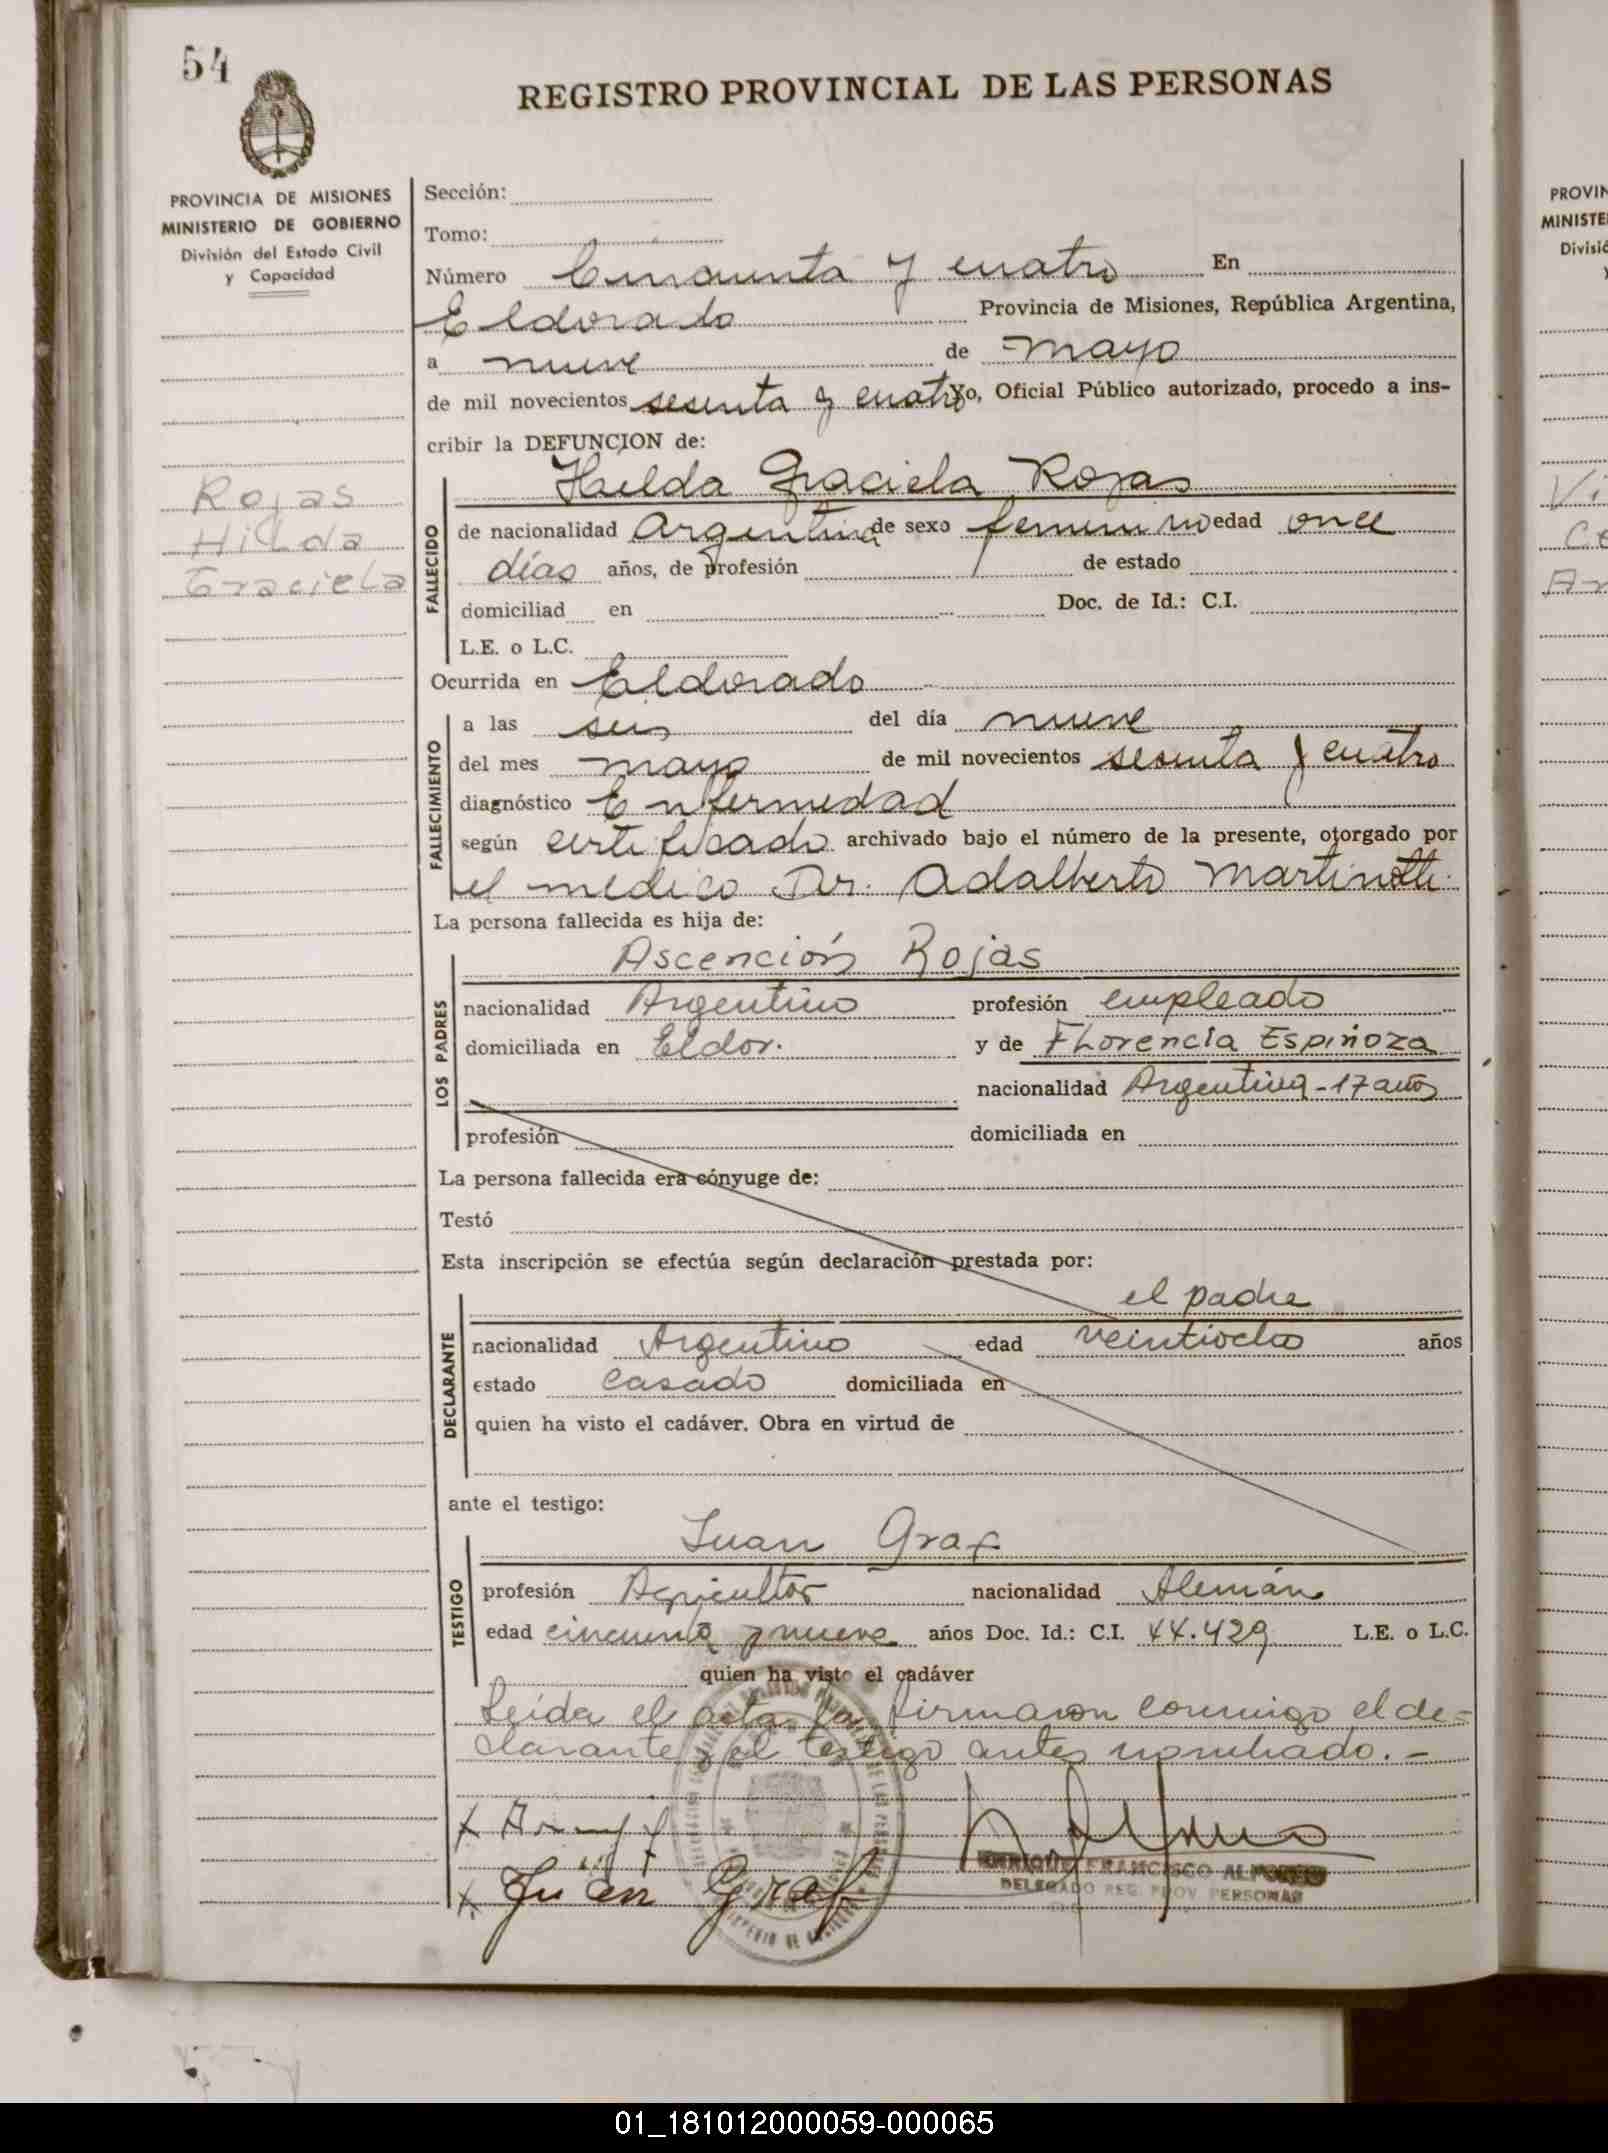 54
REGISTRO PROVINCIAL DE LAS PERSONAS
PROVINCIA DE MISIONES
MINISTERIO DE GOBIERNO
División del Estado Civil
y Capacidad
Rojas
Hilda
Graciela
Sección:
Tomo:
Número Cincuenta y cuatro En
Eldorado Provincia de Misiones, República Argentina,
a nueve de mayo
de mil novecientos sesenta y cuatro Yo, Oficial Público autorizado, procedo a ins-
cribir la DEFUNCION de:
FALLECIDO
Hilda Graciela Rojas
de nacionalidad Argentina de sexo femenino edad once
días años, de profesión de estado
domiciliad en Doc. de Id.: C.I.
L.E. o L.C.
Ocurrida en Eldorado
FALLECIMIENTO
a las seis del día nueve
del mes mayo de mil novecientos sesenta y cuatro
diagnóstico Enfermedad
según certificado archivado bajo el número de la presente, otorgado por
el medico Dr. Adalberto Martinotti.
La persona fallecida es hija de:
LOS PADRES
Ascención Rojas
nacionalidad Argentino profesión empleado
domiciliada en Eldor. y de FLorencia Espinoza
nacionalidad Argentina - 17 años
profesión domiciliada en
La persona fallecida era cónyuge de:
Testó
Esta inscripción se efectúa según declaración prestada por:
DECLARANTE
el padre
nacionalidad Argentino edad veintiocho años
estado Casado domiciliada en
quien ha visto el cadáver. Obra en virtud de
ante el testigo:
TESTIGO
Juan Graf
profesión Agricultor nacionalidad Alemán
edad cincuenta y nueve años Doc. Id.: C.I. 44.429 L.E. o L.C.
quien ha visto el cadáver
Leída el acta la firmaron conmigo el de-
clarante y el testigo antes nombrado. -
Juan Graf
ENRIQUE FRANCISCO ALFONSO
DELEGADO REG. PROV. PERSONAS
PROVIN
MINISTE
Divisió
y
Vi
Ce
An
01_181012000059-000065